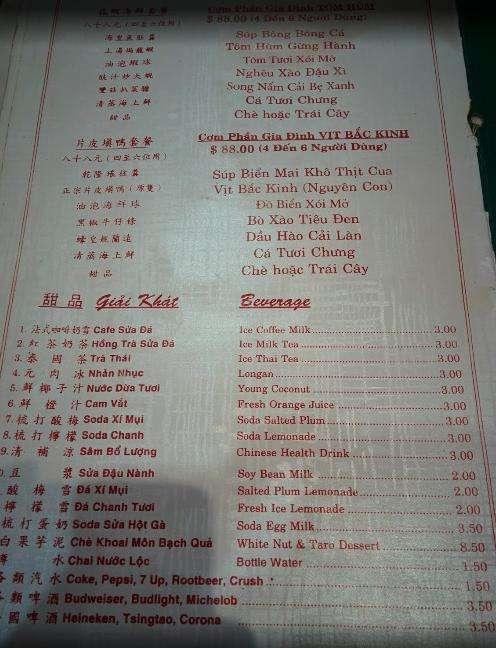 龍蝦海鮮套餐 Cơm Phần Gia Đình TÔM HÙM
八十八元 (四至六位用) $ 88.00 (4 Đến 6 Người Dùng)
海皇魚肚羹 Súp Bóng Bóng Cá
上湯焗龍蝦 Tôm Hùm Gừng Hành
油泡蝦球 Tôm Tươi Xối Mở
豉汁炒大蜆 Nghêu Xào Đậu Xì
雙菇扒菜膽 Song Nấm Cải Bẹ Xanh
清蒸海上鮮 Cá Tươi Chưng
甜品 Chè hoặc Trái Cây
片皮填鴨套餐 Cơm Phần Gia Đình VỊT BẮC KINH
八十八元 (四至六位用) $ 88.00 (4 Đến 6 Người Dùng)
乾隆瑤柱羹 Súp Biển Mai Khô Thịt Cua
正宗片皮填鴨 (原隻) Vịt Bắc Kinh (Nguyên Con)
油泡海鮮球 Đồ Biển Xối Mở
黑椒牛仔條 Bò Xào Tiêu Đen
蠔皇極蘭遠 Dầu Hào Cải Làn
清蒸海上鮮 Cá Tươi Chưng
甜品 Chè hoặc Trái Cây
甜品 Giải Khát Beverage
1. 法式咖啡奶雪 Cafe Sữa Đá Ice Coffee Milk 3.00
2. 紅茶奶茶 Hồng Trà Sữa Đá Ice Milk Tea 3.00
3. 泰國茶 Trà Thái Ice Thai Tea 3.00
4. 元肉冰 Nhản Nhục Longan 3.00
5. 鮮椰子汁 Nước Dừa Tươi Young Coconut 3.00
6. 鮮橙汁 Cam Vắt Fresh Orange Juice 3.00
7. 梳打酸梅 Soda Xí Mụi Soda Salted Plum 3.00
8. 梳打檸檬 Soda Chanh Soda Lemonade 3.00
9. 清補涼 Sâm Bổ Lượng Chinese Health Drink 3.00
0. 豆漿 Sửa Đậu Nành Soy Bean Milk 2.00
酸梅雪 Đá Xí Mụi Salted Plum Lemonade 2.00
檬雪 Đá Chanh Tươi Fresh Ice Lemonade 2.00
梳打蛋奶 Soda Sửa Hột Gà Soda Egg Milk 3.50
白果芋泥 Chè Khoai Môn Bạch Quả White Nut & Taro Dessert 8.50
水 Chai Nước Lộc Bottle Water 1.50
各類汽水 Coke, Pepsi, 7 Up, Rootbeer, Crush 1.50
各類啤酒 Budweiser, Budlight, Michelob 3.50
國啤酒 Heineken, Tsingtao, Corona 3.50